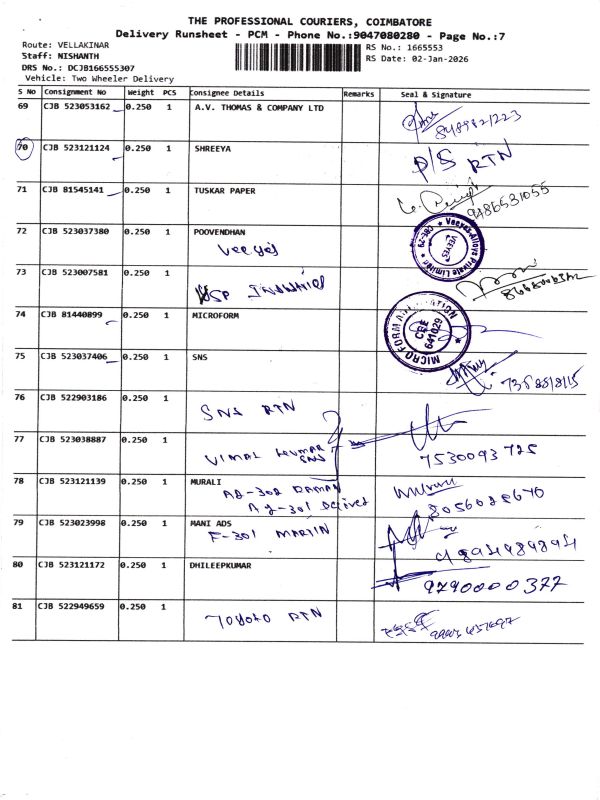 THE PROFESSIONAL COURIERS, COIMBATORE
Delivery Runsheet - PCM - Phone No.:9047080280 - Page No.:7
Route: VELLAKINAR
Staff: NISHANTH
DRS No.: DCJB166555307
Vehicle: Two Wheeler Delivery
RS No.: 1665553
RS Date: 02-Jan-2026
S No Consignment No Weight PCS Consignee Details Remarks Seal & Signature
69 CJB 523053162 0.250 1 A.V. THOMAS & COMPANY LTD
8489821223
70 CJB 523121124 0.250 1 SHREEYA P/S RTN
71 CJB 81545141 0.250 1 TUSKAR PAPER
9486531055
72 CJB 523037380 0.250 1 POOVENDHAN
Veeyes
Veeyes Alloys Private Limited
VEEYES
CBE-29
73 CJB 523007581 0.250 1
74 CJB 81440899 0.250 1 MICROFORM
MICRO FORM
CBE
641029
75 CJB 523037406 0.250 1 SNS
76 CJB 522903186 0.250 1
SNS RTN
77 CJB 523038887 0.250 1
VIMAL KUMAR
SNS
7530093725
78 CJB 523121139 0.250 1 MURALI
8056028670
79 CJB 523023998 0.250 1 MANI ADS
F-301 MARTIN
80 CJB 523121172 0.250 1 DHILEEPKUMAR
9790000377
81 CJB 522949659 0.250 1
RTN